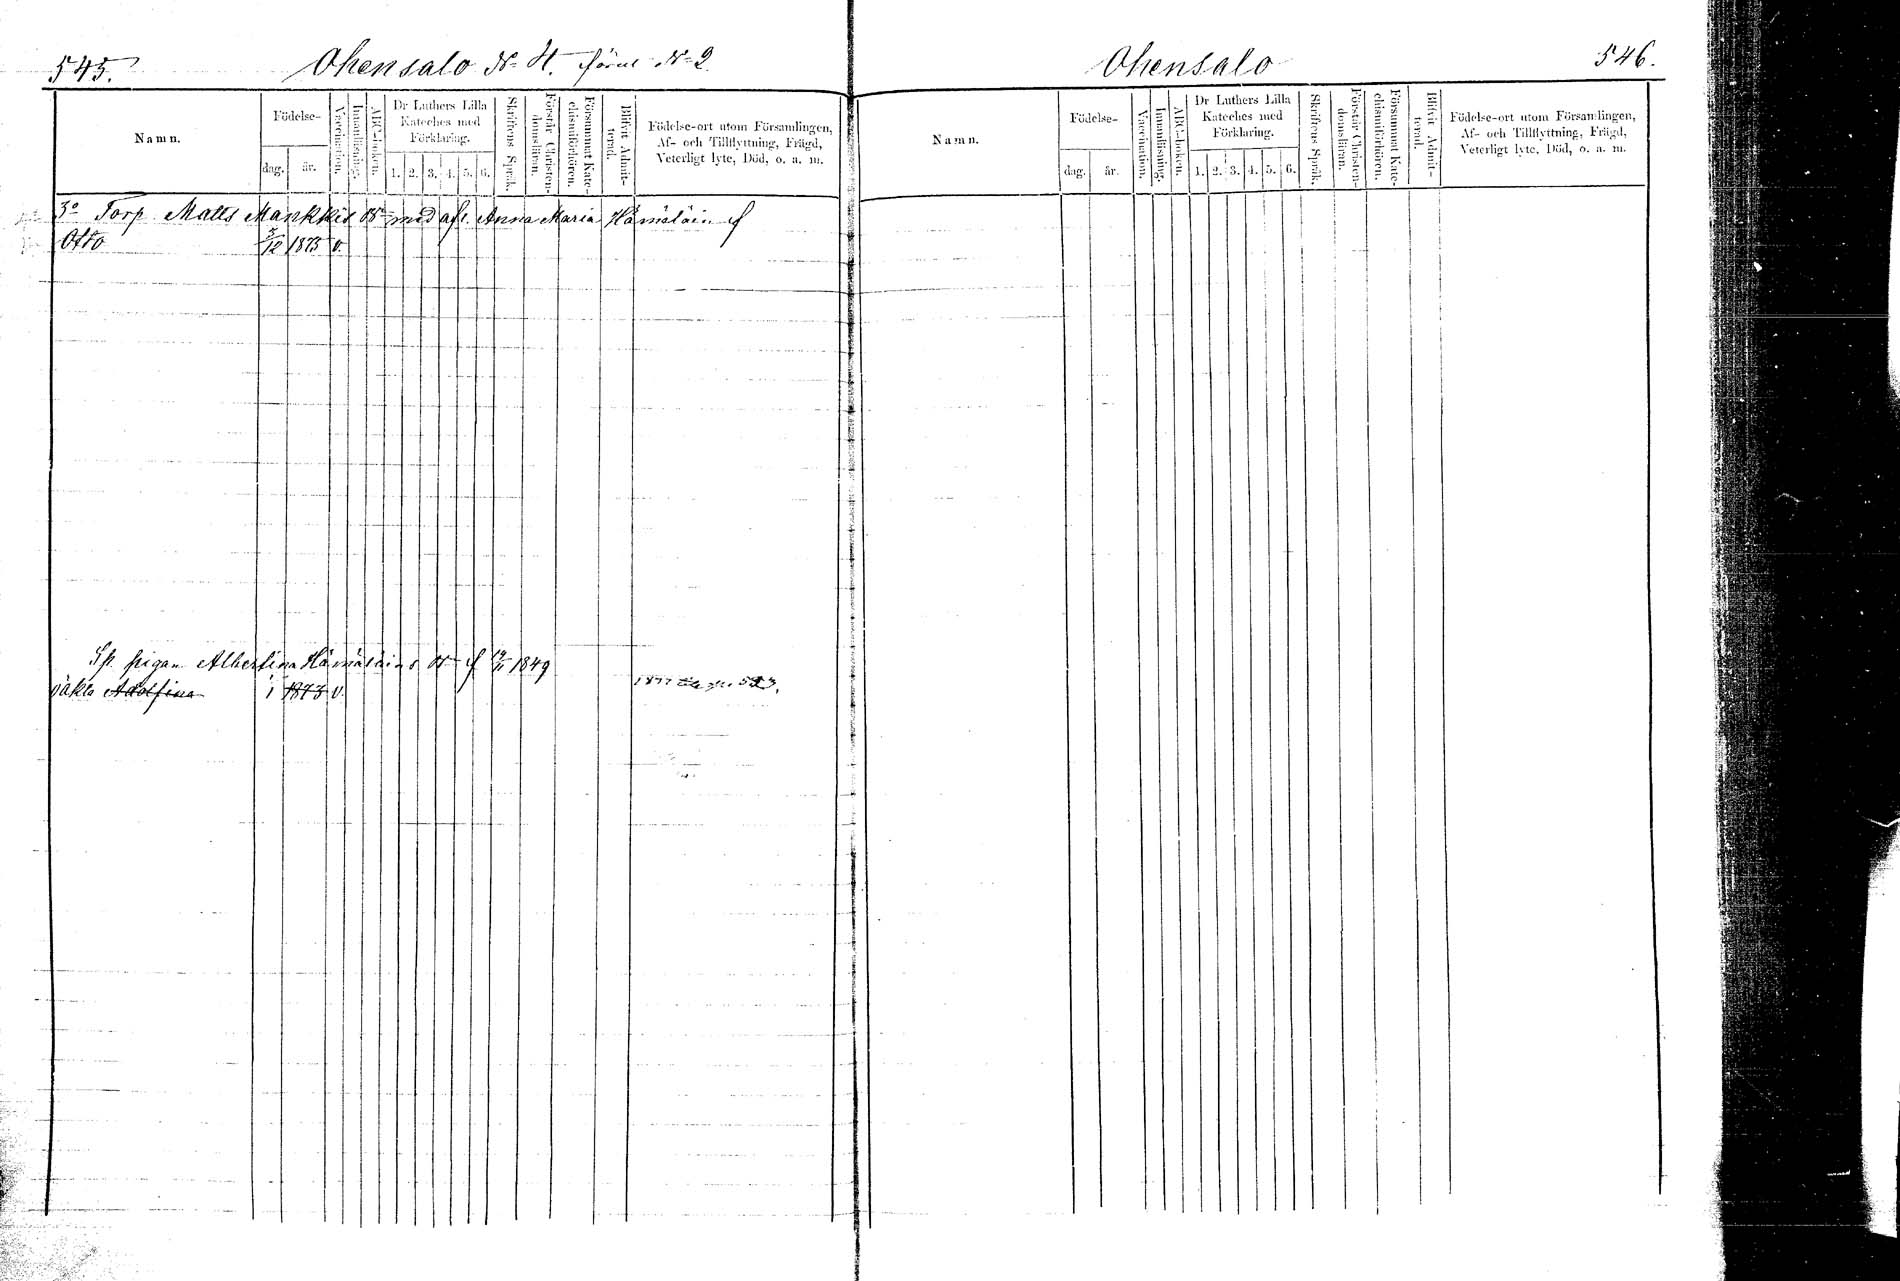 545.
Ohensalo No 4. förut No 2
Namn.
Födelse-
dag.
år.
Vaccination.
Innanläsning.
ABC-boken.
Dr Luthers Lilla
Kateches med
Förklaring.
1. 2. 3. 4. 5. 6.
Skriftens Språk.
Förstår Christen-
domsläran.
Försummat Kate-
chismiförhören.
Blifvit Admit-
terad.
Födelse-ort utom Församlingen,
Af- och Tillflyttning, Frägd,
Veterligt lyte, Död, o. a. m.
3o Torp. Matts Mankkis med afl. Anna Maria Hämäläin
Otto 3/12 1873 v.
Sp. pigan Albertina Hämäläins f 1849
oäkta Adolfina 1 1873 v. 1877
Ohensalo
546.
Namn.
Födelse-
dag.
år.
Vaccination.
Innanläsning.
ABC-boken.
Dr Luthers Lilla
Kateches med
Förklaring.
1. 2. 3. 4. 5. 6.
Skriftens Språk.
Förstår Christen-
domsläran.
Försummat Kate-
chismiförhören.
Blifvit Admit-
terad.
Födelse-ort utom Församlingen,
Af- och Tillflyttning, Frägd,
Veterligt lyte, Död, o. a. m.